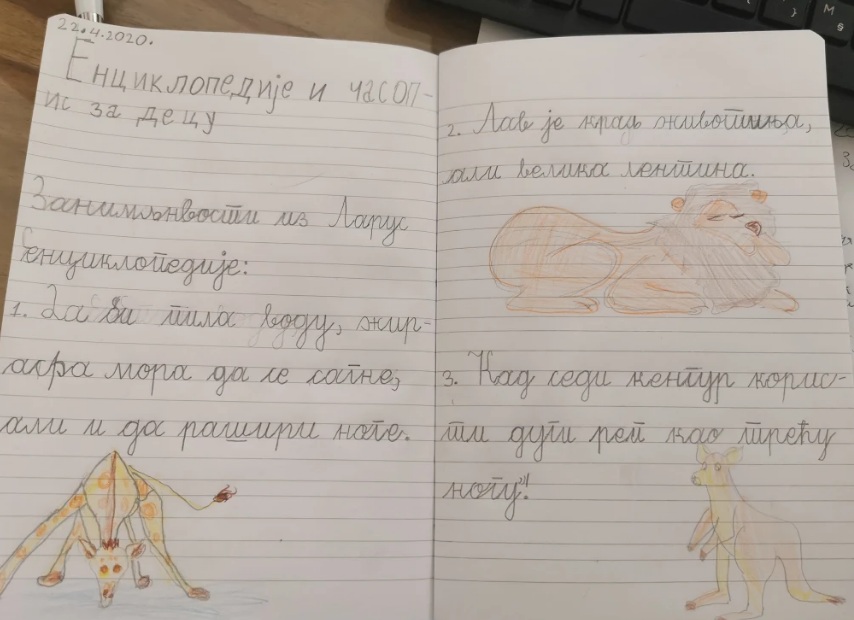 22.4.2020.
Енциклопедије и часоп-
ис за децу
Занимљивости из Ларус
енциклопедије:
1. Да би пила воду, жир-
афа мора да се сагне,
али и да рашири ноге.
2. Лав је краљ животиња,
али велика лентина.
3. Кад седи кенгур корис-
ти дуги реп као трећу
ногу!